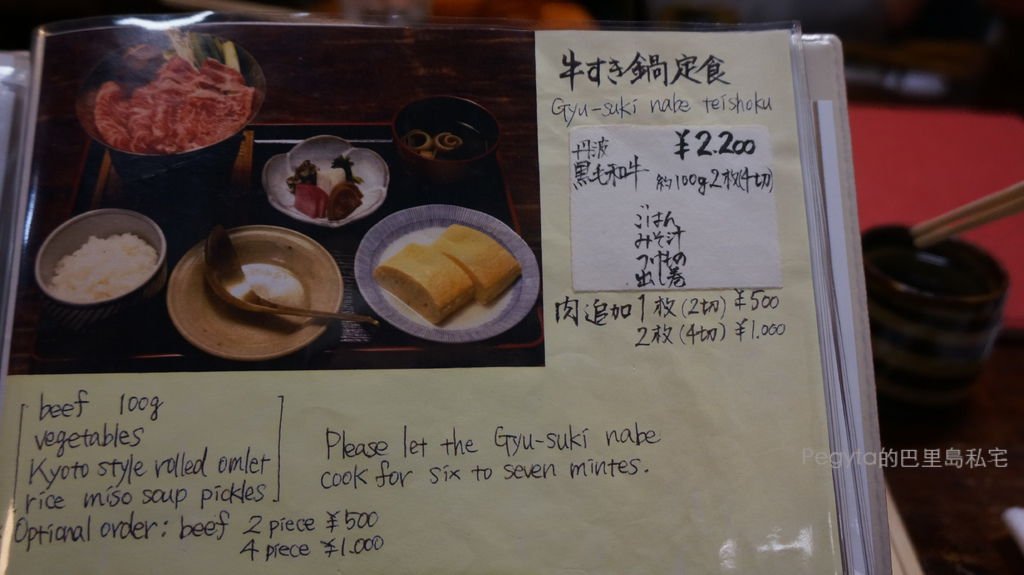 牛すき鍋定食
Gyu-suki nabe teishoku
丹波 ¥2.200
黒毛和牛 約100g.2枚(4切)
ごはん
みそ汁
つけもの
出し巻
肉追加 1枚(2切) ¥500
2枚(4切) ¥1.000
beef 100g
vegetables
Kyoto style rolled omlet
rice miso soup pickles
Optional order: beef 2 piece ¥500
4 piece ¥1.000
Please let the Gyu-suki nabe
cook for six to seven mintes.
Pegyta的巴里島私宅